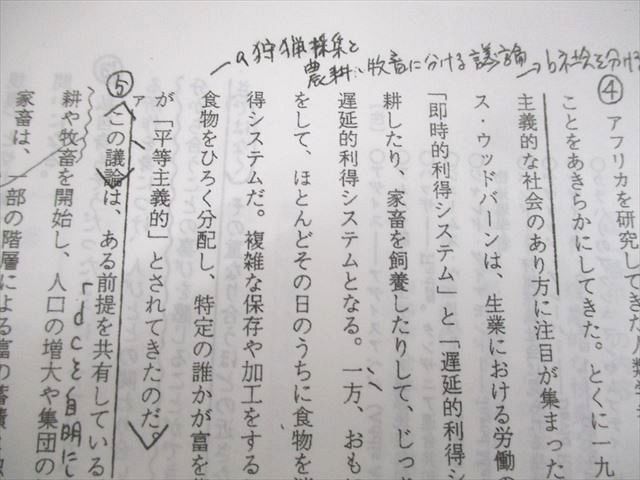 →a 狩猟採集と
農耕、牧畜に分ける議論
④
アフリカを研究してきた人類
ことをあきらかにしてきた。とくに一九
主義的な社会のあり方に注目が集まった
ス・ウッドバーンは、生業における労働の
「即時的利得システム」と「遅延的利得シ
耕したり、家畜を飼養したりして、じっ
遅延的利得システムとなる。一方、おも
をして、ほとんどその日のうちに食物を
得システムだ。複雑な保存や加工をする
食物をひろく分配し、特定の誰かが富を
が「平等主義的」とされてきたのだ。
⑤
ア
この議論は、ある前提を共有している
耕や牧畜を開始し、人口の増大や集団の
家畜は、一部の階層による富の蓄積
cを自明に